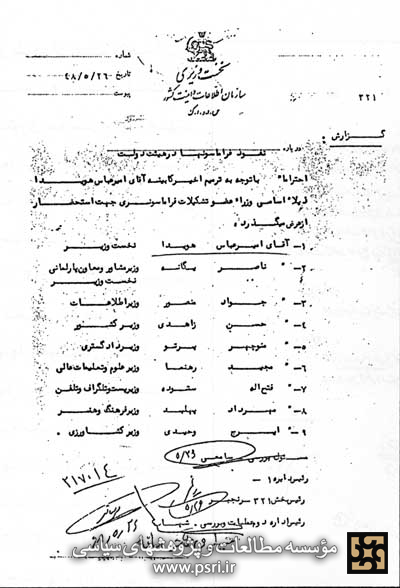 نخست وزیری
سازمان اطلاعات و امنیت کشور
س.ا.و.ا.ک
شماره
تاریخ ۴۸/۵/۲۶
پیوست
۳۲۱
گزارش
درباره نفوذ فراماسونها در هیئت دولت
احتراما" باتوجه به ترمیم اخیر کابینه آقای امیرعباس هویدا
ذیلا" اسامی وزراء عضو تشکیلات فراماسونری جهت استحضار
از عرض میگذرد:
۱- آقای امیرعباس هویدا نخست وزیر
۲- " ناصر یگانه وزیرمشاور و معاون پارلمانی نخست وزیر
۳- " جواد منصور وزیراطلاعات
۴- " حسن زاهدی وزیر کشور
۵- " منوچهر پرتو وزیردادگستری
۶- " مجید رهنما وزیرعلوم وتعلیمات عالی
۷- " فتح اله ستوده وزیرپست وتلگراف وتلفن
۸- " مهرداد پهلبد وزیرفرهنگ وهنر
۹- " ایرج وحیدی وزیر کشاورزی
مسئول بررسی ۵/۲۶
رئیس دایره ۱-
۳۱۷۰۱۴
رئیس بخش ۳۲۱
رئیس اداره دوم عملیات وبررسی
مؤسسه مطالعات و پژوهشهای سیاسی
www.psri.ir